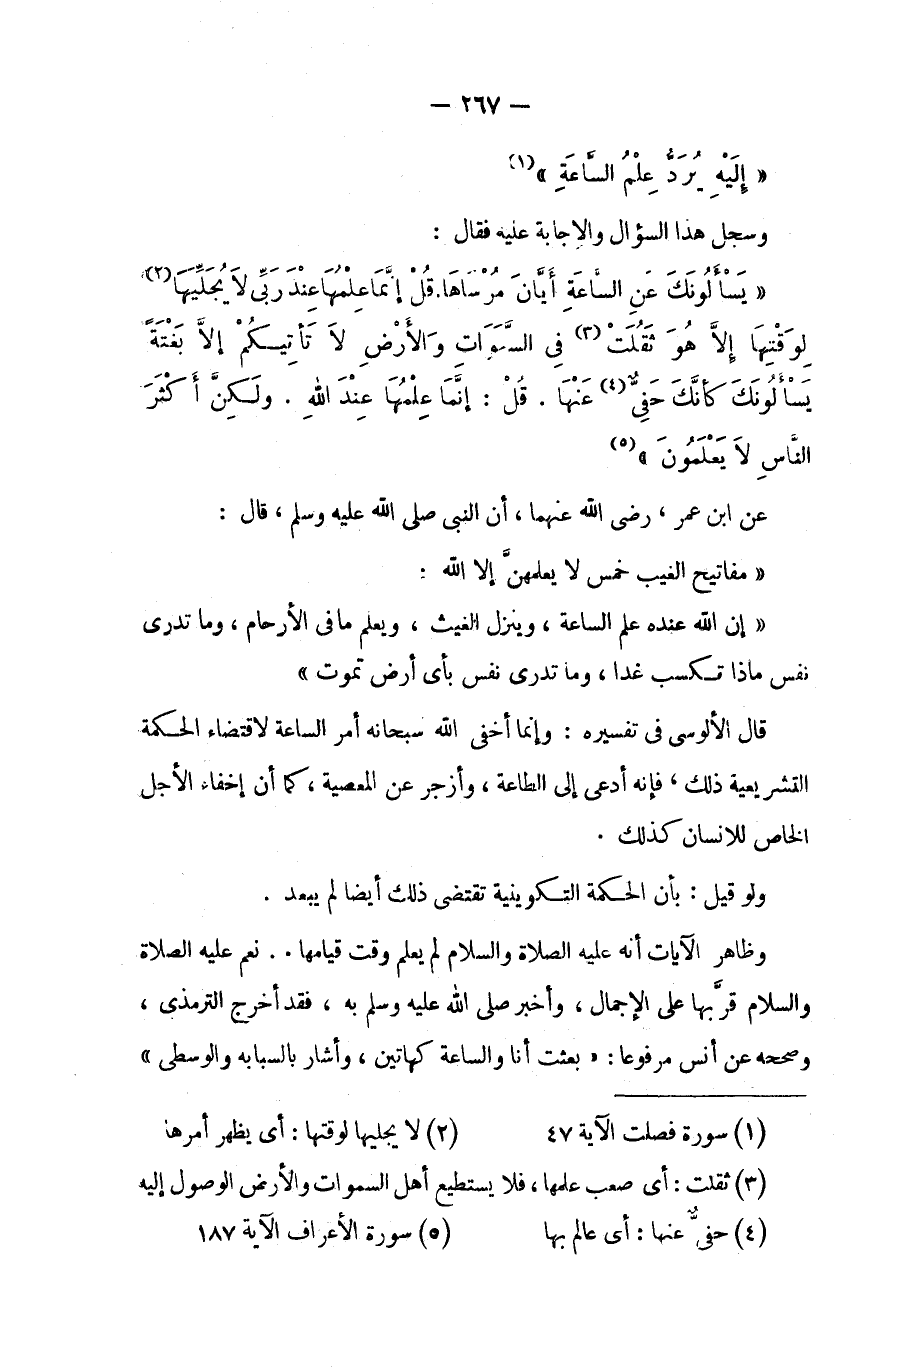 — ٢٦٧ —
« إِلَيْهِ يُرَدُّ عِلْمُ السَّاعَةِ »(١)
وسجل هذا السؤال والاجابة عليه فقال :
« يَسْأَلُونَكَ عَنِ السَّاعَةِ أَيَّانَ مُرْسَاهَا. قُلْ إِنَّمَا عِلْمُهَا عِنْدَ رَبِّى لاَ يُجَلِّيهَا(٢)
لِوَقْتِهَا إِلاَّ هُوَ ثَقُلَتْ(٣) فِى السَّمَوَاتِ وَالأَرْضِ لاَ تَأْتِيكُمْ إلاَّ بَغْتَةً
يَسْأَلُونَكَ كَأنَّكَ حَفِىٌّ(٤) عَنْهَا . قُلْ : إنَّمَا عِلْمُهَا عِنْدَ اللهِ . ولَكِنَّ أَكْثَرَ
النَّاسِ لاَ يَعْلَمُونَ »(٥)
عن ابن عمر ، رضى الله عنهما ، أن النبى صلى الله عليه وسلم ، قال :
« مفاتيح الغيب خمس لا يعلمهنَّ إلا الله :
« إن الله عنده علم الساعة ، وينزل الغيث ، ويعلم مافى الأرحام ، وما تدرى
نفس ماذا تكسب غدا ، وما تدرى نفس بأى أرض تموت »
قال الألوسى فى تفسيره : وإنما أخفى الله سبحانه أمر الساعة لاقتضاء الحكمة
التشريعية ذلك ، فإنه أدعى إلى الطاعة ، وأزجر عن المعصية ، كما أن إخفاء الأجل
الخاص للانسان كذلك .
ولو قيل : بأن الحكمة التكوينية تقتضى ذلك أيضا لم يبعد .
وظاهر الآيات أنه عليه الصلاة والسلام لم يعلم وقت قيامها . . نعم عليه الصلاة
والسلام قرَّبها على الإجمال ، وأخبر صلى الله عليه وسلم به ، فقد أخرج الترمذى ،
وصححه عن أنس مرفوعا : « بعثت أنا والساعة كهاتين ، وأشار بالسبابه والوسطى »
(١) سورة فصلت الآية ٤٧ (٢) لا يجليها لوقتها : أى يظهر أمرها
(٣) ثقلت : أى صعب علمها ، فلا يستطيع أهل السموات والأرض الوصول إليه
(٤) حفىٌّ عنها : أى عالم بها (٥) سورة الأعراف الآية ١٨٧